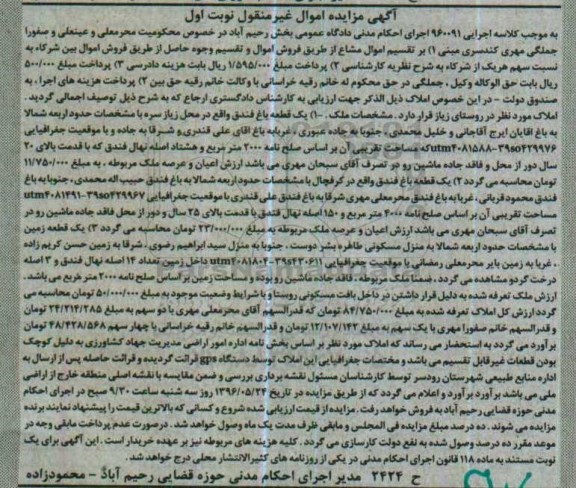 آگهی مزایده اموال غیرمنقول نوبت اول
به موجب کلاسه اجرایی ۹۶۰۰۹۱ اجرای احکام مدنی دادگاه عمومی بخش رحیم آباد در خصوص محکومیت محرمعلی و عینعلی و صفورا
جملگی مهری کندسری مبنی ۱) بر تقسیم اموال مشاع از طریق فروش اموال و تقسیم وجوه حاصل از طریق فروش اموال بین شرکاء به
نسبت سهم هریک از شرکاء به شرح نظریه کارشناسی ۲) پرداخت مبلغ ۱/۵۹۵/۰۰۰ ریال بابت هزینه دادرسی ۳) پرداخت مبلغ ۵۰۰/۰۰۰
ریال بابت حق الوکاله وکیل ، جملگی در حق محکوم له خانم رقیه خراسانی با وکالت خانم رقیه حق بین ۲) پرداخت هزینه های اجرا ، به
صندوق دولت - در این خصوص املاک ذیل الذکر جهت ارزیابی به کارشناس دادگستری ارجاع که به شرح ذیل توصیف اجمالی گردید .
املاک مورد نظر در روستای زیاز قرار دارد . مشخصات ملک . ۱- یک قطعه باغ فندق واقع در محل زیاز سره با مشخصات حدود اربعه شمالا
به باغ اقایان ایرج آقاجانی و خلیل محمدی ، جنوبا به جاده عبوری ، غربا به باغ اقای علی قندری و شرقا به جاده و با موقعیت جغرافیایی
utm۴۰۸۱۵۸۸-۳۹so۴۲۹۹۷۶ که مساحت تقریبی آن بر اساس صلح نامه ۲۰۰۰ متر مربع و هشتاد اصله نهال فندق که با قدمت بالای ۲۰
سال دور از محل و فاقد جاده ماشین رو در تصرف آقای سبحان مهری می باشد ارزش اعیان و عرصه ملک مربوطه ، به مبلغ ۱۱/۷۵۰/۰۰۰
تومان محاسبه می گردد ۲) یک قطعه باغ فندق واقع در کرفچال با مشخصات حدود اربعه شمالا به باغ فندق حبیب اله محمدی ، جنوبا به باغ
فندق محمود قربانی ، غربا به باغ فندق محرمعلی مهری شرقا به باغ فندق علی قندری با موقعیت جغرافیایی utm۴۰۸۱۴۹۱-۳۹so۴۲۹۹۶۷
مساحت تقریبی آن بر اساس صلح نامه ۴۰۰۰ متر مربع و ۱۵۰ اصله نهال فندق با قدمت بالای ۲۵ سال و دور از محل فاقد جاده ماشین رو در
تصرف آقای سبحان مهری می باشد ارزش اعیان و عرصه ملک مربوطه به مبلغ ۲۳/۰۰۰/۰۰۰ تومان محاسبه می گردد ۳) یک قطعه زمین
با مشخصات حدود اربعه شمالا به منزل مسکونی طاهره بشر دوست . جنوبا به منزل سید ابراهیم رضوی . شرقا به زمین حسن کریم زاده
. غربا به زمین بایر محرمعلی رمضانی با موقعیت جغرافیایی utm۴۰۸۱۸۰۴-۳۹s۴۳۰۶۱۱ داخل زمین تعداد ۱۴ اصله نهال فندق و ۳ اصله
درخت گردو مشاهده می گردد . ضمنا ملک مربوطه ، فاقد جاده ماشین رو بوده و مساحت زمین بر اساس صلح نامه ۲۰۰۰ متر مربع می باشد .
ارزش ملک تعرفه شده به دلیل قرار داشتن در داخل بافت مسکونی روستا و با شرایط وضعیت موجود به مبلغ ۵۰/۰۰۰/۰۰۰ تومان محاسبه می
گردد ارزش کل املاک تعرفه شده به مبلغ ۸۴/۷۵۰/۰۰۰ تومان که قدرالسهم آقای محرمعلی مهری با دو سهم به مبلغ ۲۴/۲۱۴/۲۸۵ تومان
و قدرالسهم خانم صفورا مهری با یک سهم به مبلغ ۱۲/۱۰۷/۱۴۲ تومان و قدرالسهم خانم رقیه خراسانی با چهار سهم ۴۸/۴۲۸/۵۶۸ تومان
برآورد می گردد به استحضار می رساند که املاک مورد نظر بر اساس بخش نامه اداره امور اراضی مدیریت جهاد کشاورزی به دلیل کوچک
بودن قطعات غیر قابل تقسیم می باشد و مختصات جغرافیایی این املاک توسط دستگاه gps قرائت گردیده و قرائت حاصله پس از ارسال به
اداره منابع طبیعی شهرستان رودسر توسط کارشناسان مسئول نقشه برداری بررسی و ضمن مقایسه با نقشه اصلی منطقه خارج از اراضی
ملی می باشد برآورد برآورد و اعلام می گردد که از طریق مزایده در تاریخ ۱۳۹۶/۰۵/۲۴ روز سه شنبه ساعت ۹/۳۰ صبح در اجرای احکام
مدنی حوزه قضایی رحیم آباد به فروش خواهد رفت . مزایده از قیمت ارزیابی شده شروع و کسانی که بالاترین قیمت را پیشنهاد نمایند برنده
مزایده می شوند . ده درصد مبلغ مزایده فی المجلس و مابقی ظرف مدت یک ماه وصول خواهد شد . در صورت عدم پرداخت مابقی وجه در
موعد مقرر ده درصد وصول شده به نفع دولت کارسازی می گردد . کلیه هزینه های مربوطه نیز بر عهده خریدار است . این آگهی برای یک
نوبت مستند به ماده ۱۱۸ قانون اجرای احکام مدنی در یکی از روزنامه های کثیرالانتشار محلی درج خواهد شد .
ح ۲۴۲۴ مدیر اجرای احکام مدنی حوزه قضایی رحیم آباد - محمودزاده